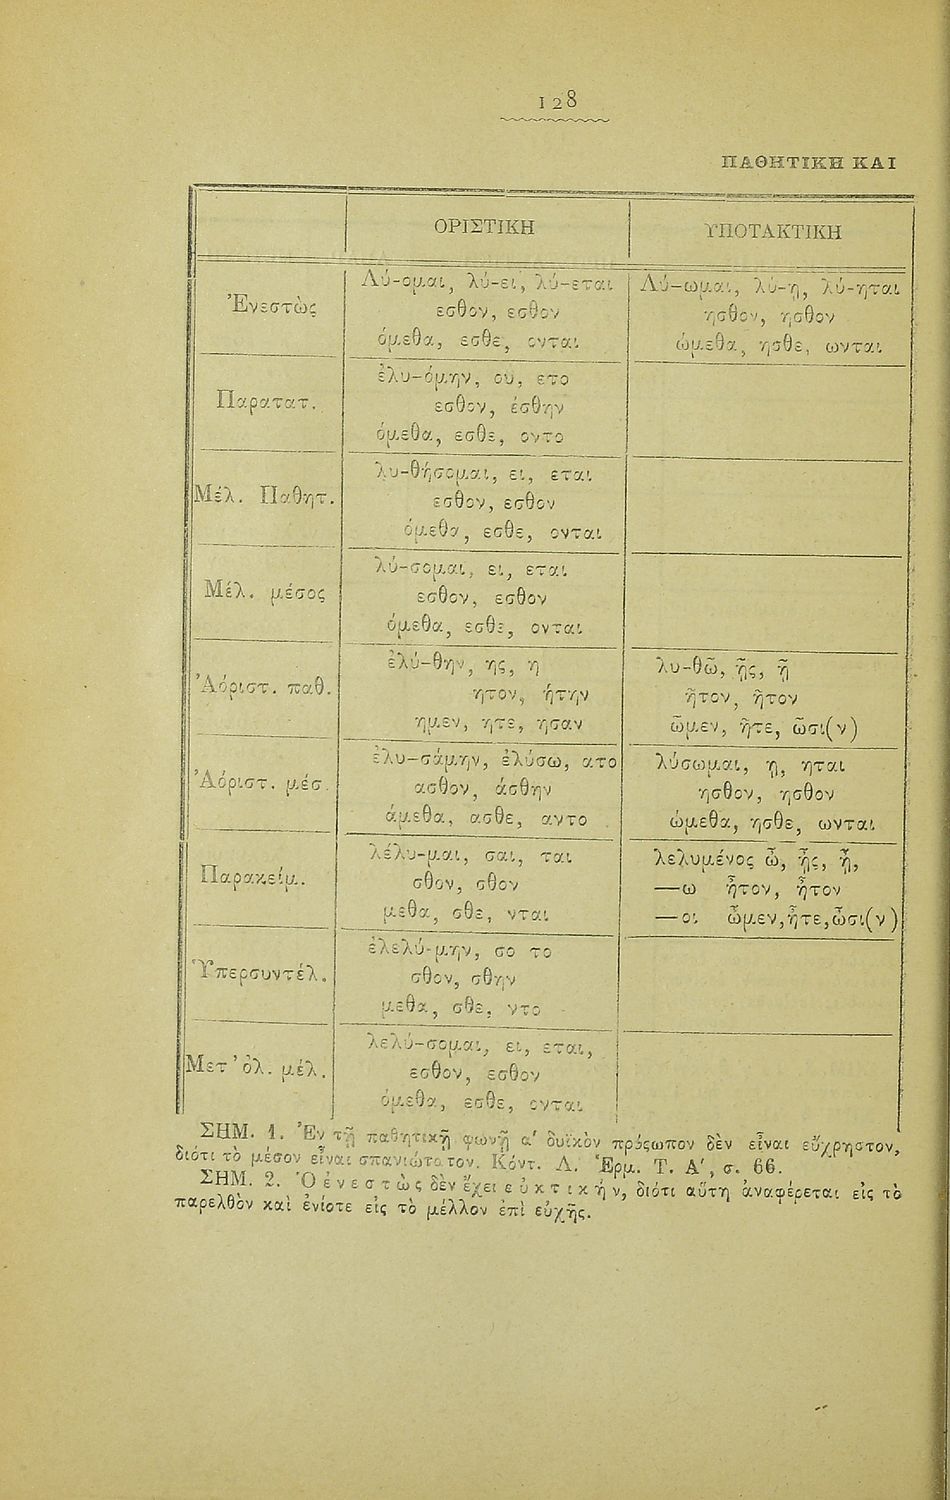 128
ΠΑΘΗΤΙΚΗ ΚΑΙ
ΟΡΙΣΤΙΚΗ ΥΠΟΤΑΚΤΙΚΗ
Ἐνεστὼς
Λύ-ομαι, λύ-ει, λύ-εται
εσθον, εσθον
όμεθα, εσθε, ονται
Λύ-ωμαι, λύ-ῃ, λύ-ηται
ησθον, ησθον
ώμεθα, ησθε, ωνται
Παρατατ.
ἐλυ-όμην, ου, ετο
εσθον, έσθην
όμεθα, εσθε, οντο
Μέλ. Παθητ.
λυ-θήσομαι, ει, εται
εσθον, εσθον
όμεθα, εσθε, ονται
Μέλ. μέσος
λύ-σομαι, ει, εται
εσθον, εσθον
όμεθα, εσθε, ονται
Ἀόριστ. παθ.
ἐλύ-θην, ης, η
ητον, ήτην
ημεν, ητε, ησαν
λυ-θῶ, ῇς, ῇ
ῆτον, ῆτον
ῶμεν, ῆτε, ῶσι(ν)
Ἀόριστ. μέσ.
ἐλυ-σάμην, ἐλύσω, ατο
ασθον, άσθην
άμεθα, ασθε, αντο
λύσωμαι, ῃ, ηται
ησθον, ησθον
ώμεθα, ησθε, ωνται
Παρακείμ.
λέλυ-μαι, σαι, ται
σθον, σθον
μεθα, σθε, νται
λελυμένος ὦ, ᾖς, ᾖ,
—ω ἦτον, ἦτον
—οι ὦμεν, ἦτε, ὦσι(ν)
Ὑπερσυντέλ.
ἐλελύ-μην, σο το
σθον, σθην
μεθα, σθε, ντο
Μετ' ὀλ. μέλ.
λελύ-σομαι, ει, εται,
εσθον, εσθον
όμεθα, εσθε, ονται
ΣΗΜ. 1. Ἐν τῇ παθητικῇ φωνῇ α' δυϊκὸν πρόςωπον δὲν εἶναι εὔχρηστον,
διότι τὸ μέσον εἶναι σπανιώτατον. Κόντ. Λ. Ἑρμ. Τ. Α', σ. 66.
ΣΗΜ. 2. Ὁ ἐνεστὼς δὲν ἔχει εὐκτικήν, διότι αὕτη ἀναφέρεται εἰς τὸ
παρελθὸν καὶ ἐνίοτε εἰς τὸ μέλλον ἐπὶ εὐχῆς.